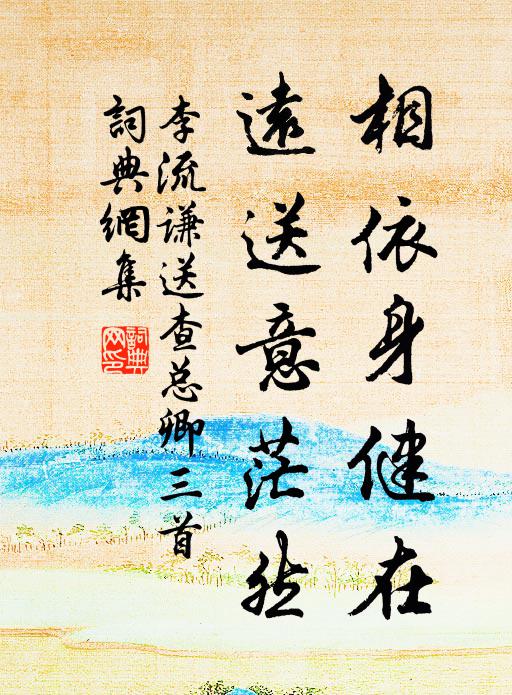 相依身健在
遠送意茫然
李流謙送查总卿三首
詞典網集
詞典網印